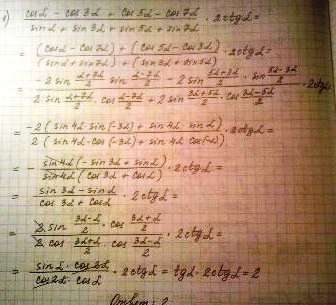 1) (cos α - cos 3α + cos 5α - cos 7α)/(sin α + sin 3α + sin 5α + sin 7α) · 2ctg α =
= ((cos α - cos 7α) + (cos 5α - cos 3α))/((sin α + sin 7α) + (sin 3α + sin 5α)) · 2ctg α =
= (-2 sin (α+7α)/2 · sin (α-7α)/2 - 2 sin (5α+3α)/2 · sin (5α-3α)/2)/(2 sin (α+7α)/2 · cos (α-7α)/2 + 2 sin (3α+5α)/2 · cos (3α-5α)/2) · 2ctg α
= -2(sin 4α · sin(-3α) + sin 4α · sin α)/(2(sin 4α · cos(-3α) + sin 4α · cos(-α))) · 2ctg α =
= - sin 4α(-sin 3α + sin α)/(sin 4α(cos 3α + cos α)) · 2ctg α =
= (sin 3α - sin α)/(cos 3α + cos α) · 2ctg α =
= (2 sin (3α-α)/2 · cos (3α+α)/2)/(2 cos (3α+α)/2 · cos (3α-α)/2) · 2ctg α =
= (sin α · cos 2α)/(cos 2α · cos α) · 2ctg α = tg α · 2ctg α = 2
Ответ: 2